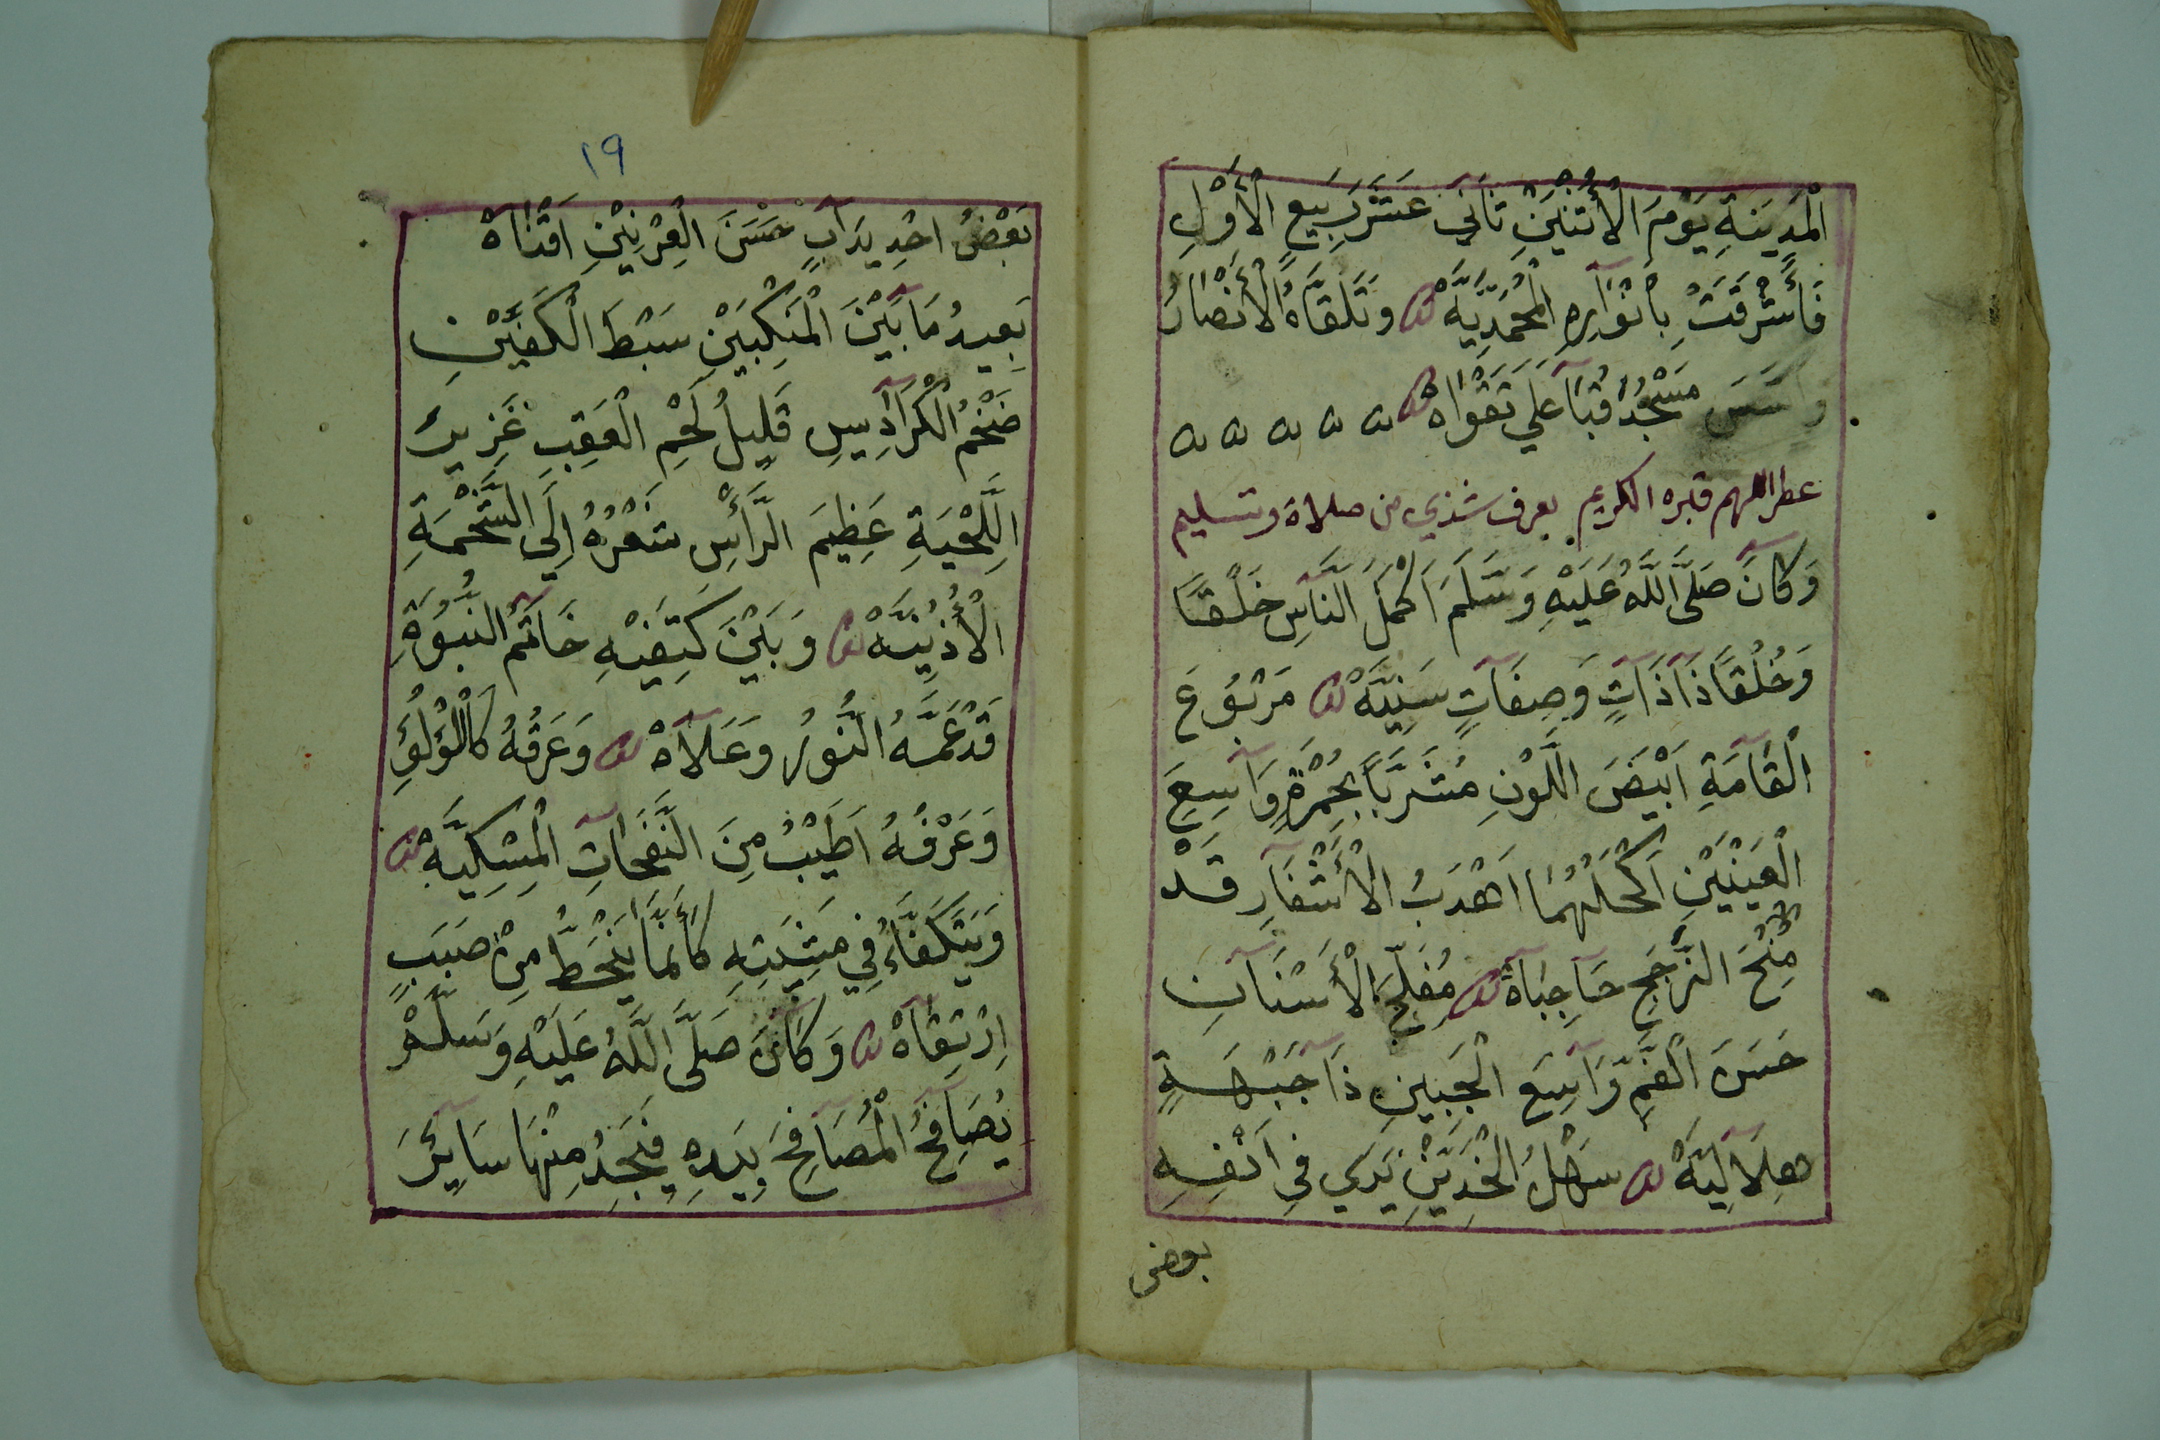 الْمَدِينَةِ يَوْمَ الْأَثْنَيْنِ ثَانَىَ عَشَرَ رَبِيعِ الْأَوَّلِ
فَأَشْرَقَتْ بِأَنْوَارِهِ الْمُحَمَّدِيَّةْ وَتَلَقَّاهُ الْأَنْصَارُ
وَاَسَّسَ مَسْجِدُ قُبَآ عَلَي تَقْوَاهْ
عطر اللهم قبره الكريم بعرف شذي من صلاة وتسليم
وَكَانَ صَلَّى اللَّهُ عَلَيْهِ وَسَلَّمَ اَكْمَلَ النَّاسِ خَلْقًا
وَخُلُقًا ذَا ذَاتٍ وَصِفَاتٍ سَنِيَّةْ مَرْبُوعَ
الْقَامَةِ اَبْيَضَ اللَّوْنِ مُشَرَّبًا بِحُمْرَةٍ وَاسِعَ
الْعَيْنَيْنِ اَكْحَلَهُمَا اَهْدَبُ الْأَشْفَارِ قَدْ
مُنِحَ الزَّجَجَ حَاجِبَاهْ مُفَلَّجَ الْأَسْنَانِ
حَسَنَ الْفَمِّ وَاسِعَ الْجَبِينِ ذَا جَبْهَةٍ
هِلَالِيَّةْ سَهْلُ الْخَدَّيْنِ يَرَي فِي اَنْفِهِ
بعض
١٩
بَعْضُ احْدِيدَابٍ حَسَنَ الْعِرْنِيْنِ اَقْنَاهْ
بَعِيدُ مَا بَيْنَ الْمَنْكِبَيْنِ سَبْطَ الْكَفَّيْنِ
ضَخْمُ الْكَرَادِيسِ قَلِيلُ لَحْمِ الْعَقِبِ غَزِيرَ
اللِّحْيَةِ عَظِيمَ الرَّأْسِ شَعْرُهُ اِلَي الشَّحْمَةِ
الْأُذُنِيَّةْ وَبَيْنَ كَتِفَيْهِ خَاتَمُ النُّبُوَّةِ
قَدْ عَمَّهُ النُّورُ وَعَلَاهْ وَعَرَقُهُ كَاللُّؤْلُؤِ
وَعَرْفُهُ اَطْيَبُ مِنَ النَّفَحَاتِ الْمِسْكِيَّةْ
وَيَتَكَفَّاءُ فِي مِشْيَتِهِ كَأَنَّمَا يَنْحَطُّ مِنْ صَبَبٍ
اِرْتَقَاهْ وَكَانَ صَلَّى اللَّهُ عَلَيْهِ وَسَلَّمْ
يُصَافِحُ الْمُصَافِحَ بِيَدِهِ فَيَجِدُ مِنْهَا سَايِرَ